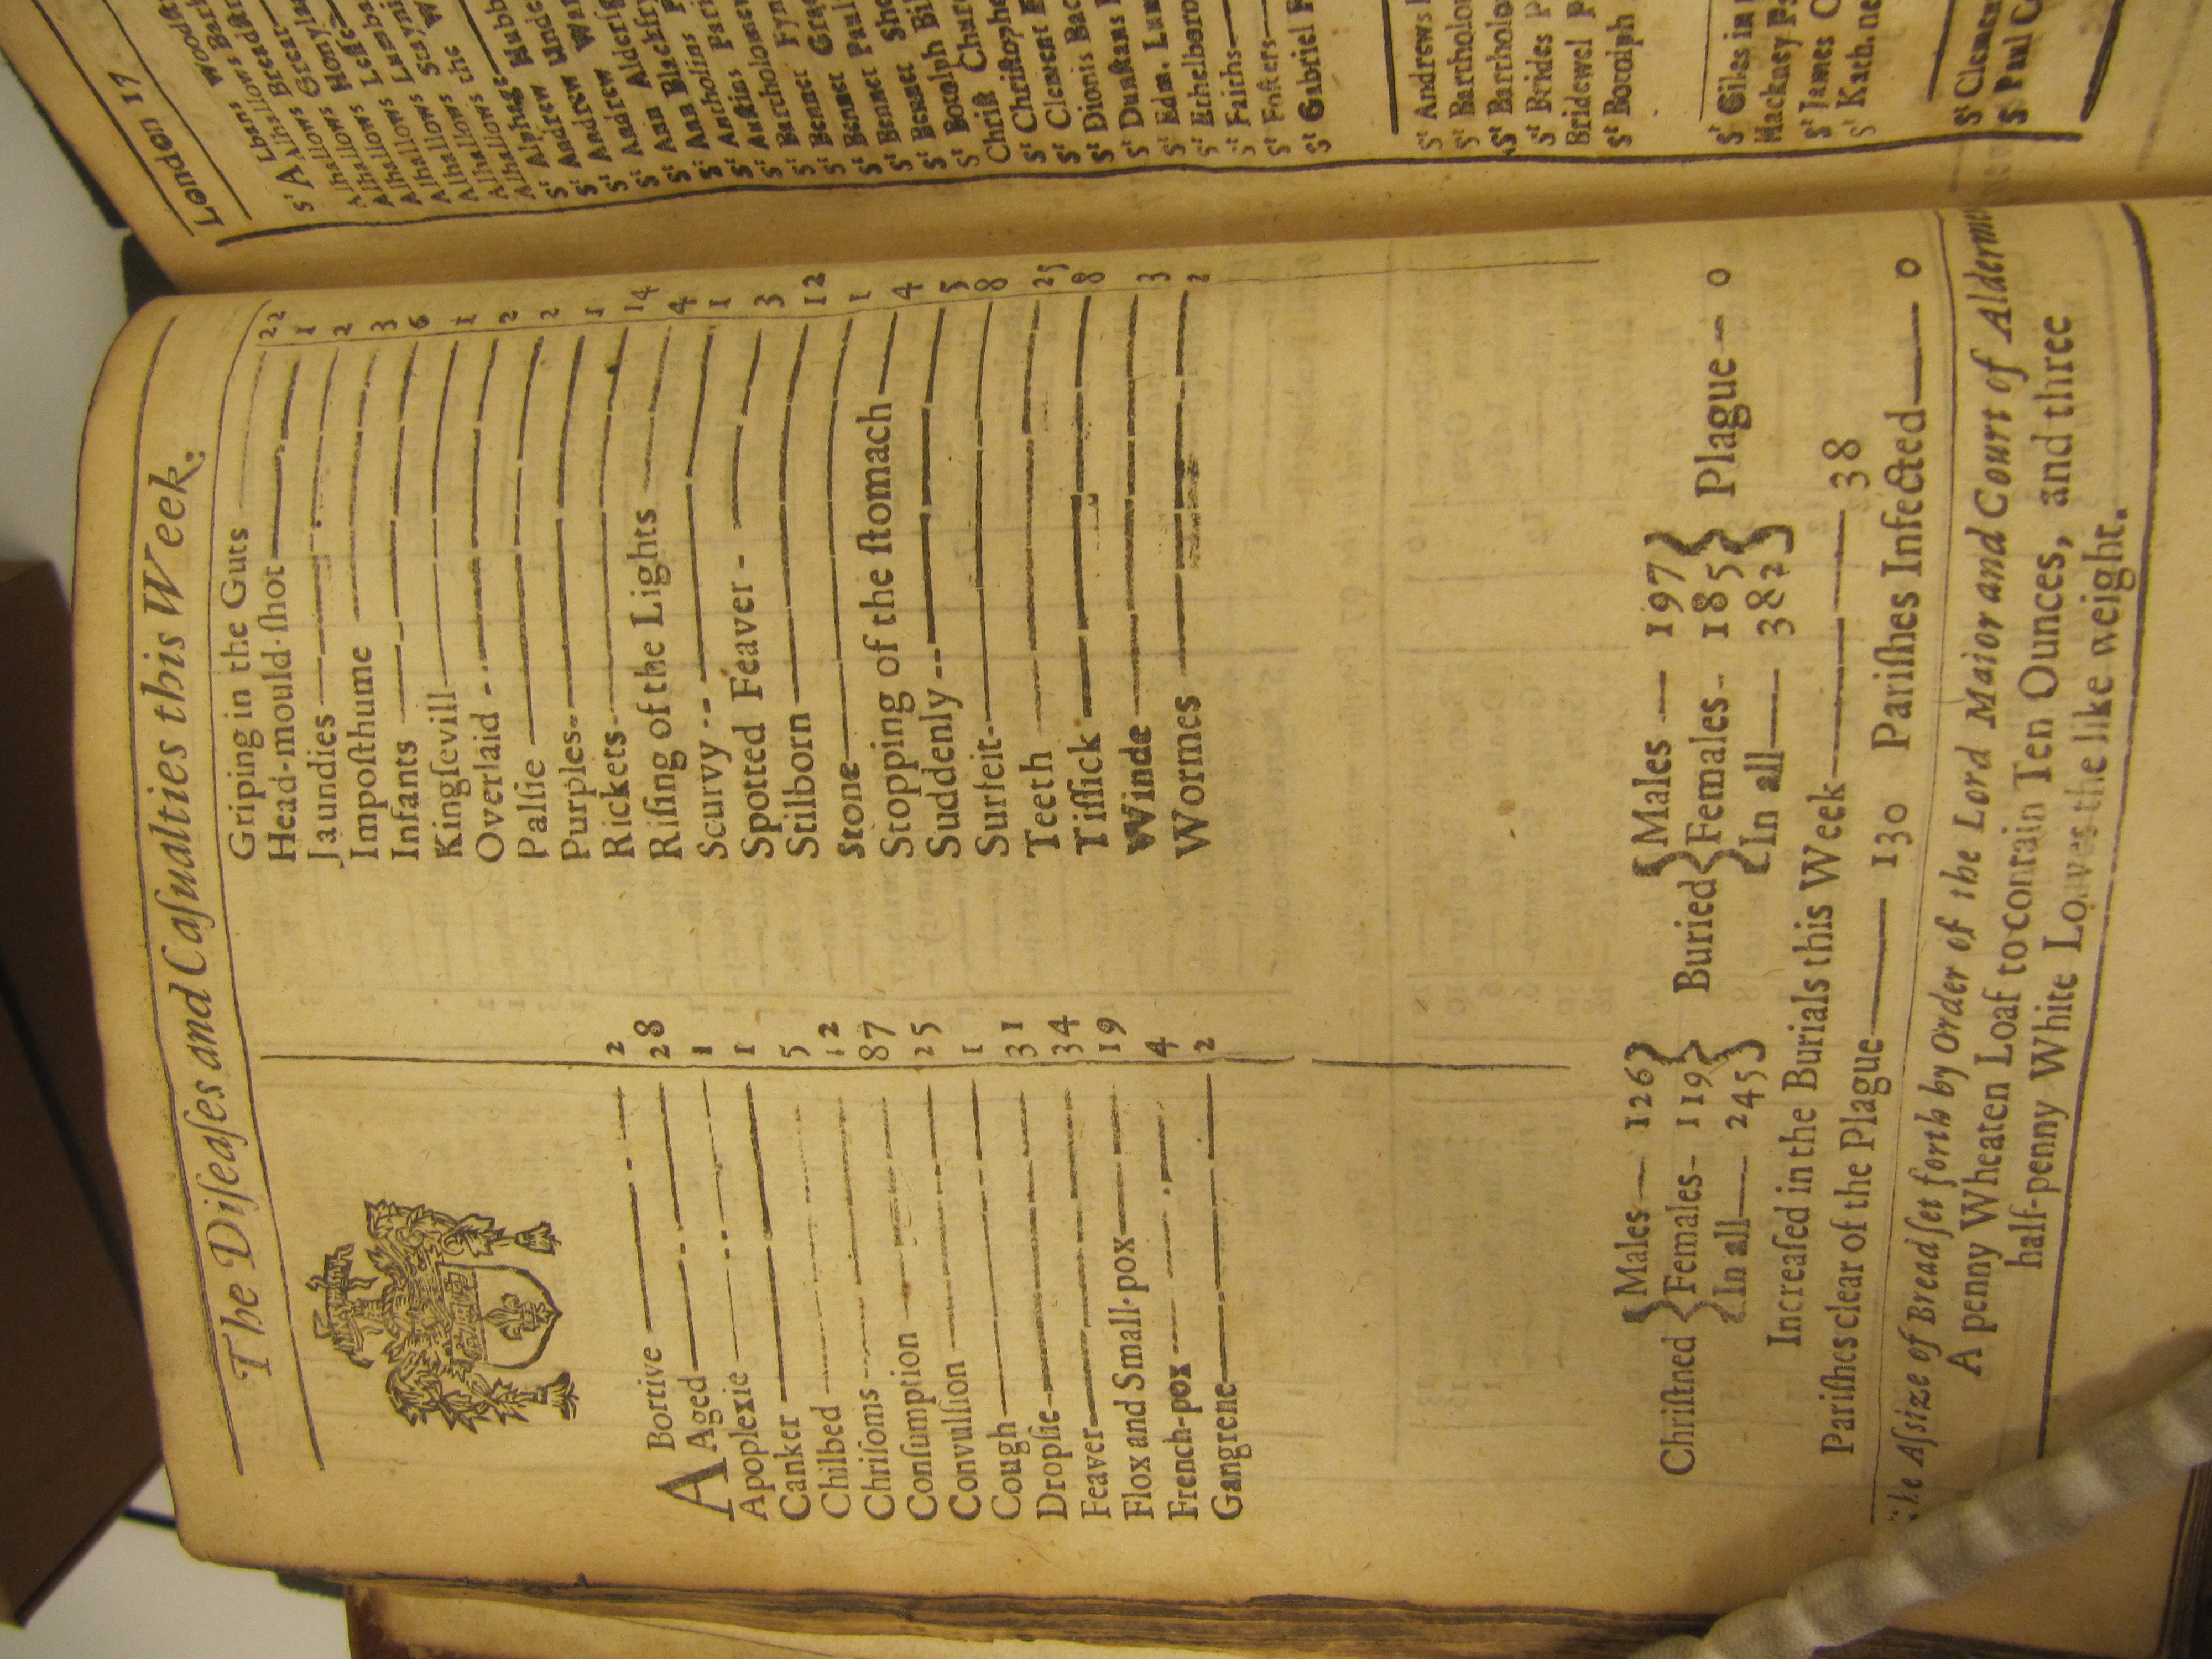 The Diſeaſes and Caſualties this Week.
ABortive — 2
Aged — 28
Apoplexie — 1
Canker — 1
Chilbed — 5
Chriſoms — 12
Conſumption — 87
Convulſion — 25
Cough — 1
Dropſie — 31
Feaver — 34
Flox and Small-pox — 19
French-pox — 4
Gangrene — 2
Griping in the Guts — 22
Head-mould-ſhot — 1
Jaundies — 2
Impoſthume — 3
Infants — 6
Kingſevill — 1
Overlaid — 2
Palſie — 2
Purples — 1
Rickets — 14
Riſing of the Lights — 4
Scurvy — 1
Spotted Feaver — 3
Stilborn — 12
Stone — 1
Stopping of the ſtomach — 4
Suddenly — 5
Surfeit — 8
Teeth — 25
Tiſſick — 8
Winde — 3
Wormes — 2
Males — 126 Males — 197
Chriſtned Females - 119 Buried Females - 185 Plague — 0
In all — 245 In all — 382
Increaſed in the Burials this Week — 38
Pariſhes clear of the Plague — 130 Pariſhes Infected — 0
The Aſsize of Bread ſet forth by Order of the Lord Maior and Court of
A penny Wheaten Loaf to contain Ten Ounces, and three
half-penny White Loaves the like weight.
London 17
St Albans
Alhallows
Alhallows
Alhallows
Alhallows
Alhallows
Alhallows
Alhallows
Alhallows the
Alhallows the
Alhallows
St Alphage
St Andrew
St Andrew
St Andrew
St Ann
St Ann
St Antholins
St Auſtins
St Bartholomew
St Bennet
St Bennet
St Bennet
St Bennet
St Botolph
Chriſt
St
St Clement
St Dionis
St Dunſtans
St Edm.
St
St Faiths
St Foſters
St Gabriel
St Andrews
St
St
St Brides
Bridewel
St Botolph
St Giles in
Hackney
St James
St Kath.
St
St Paul